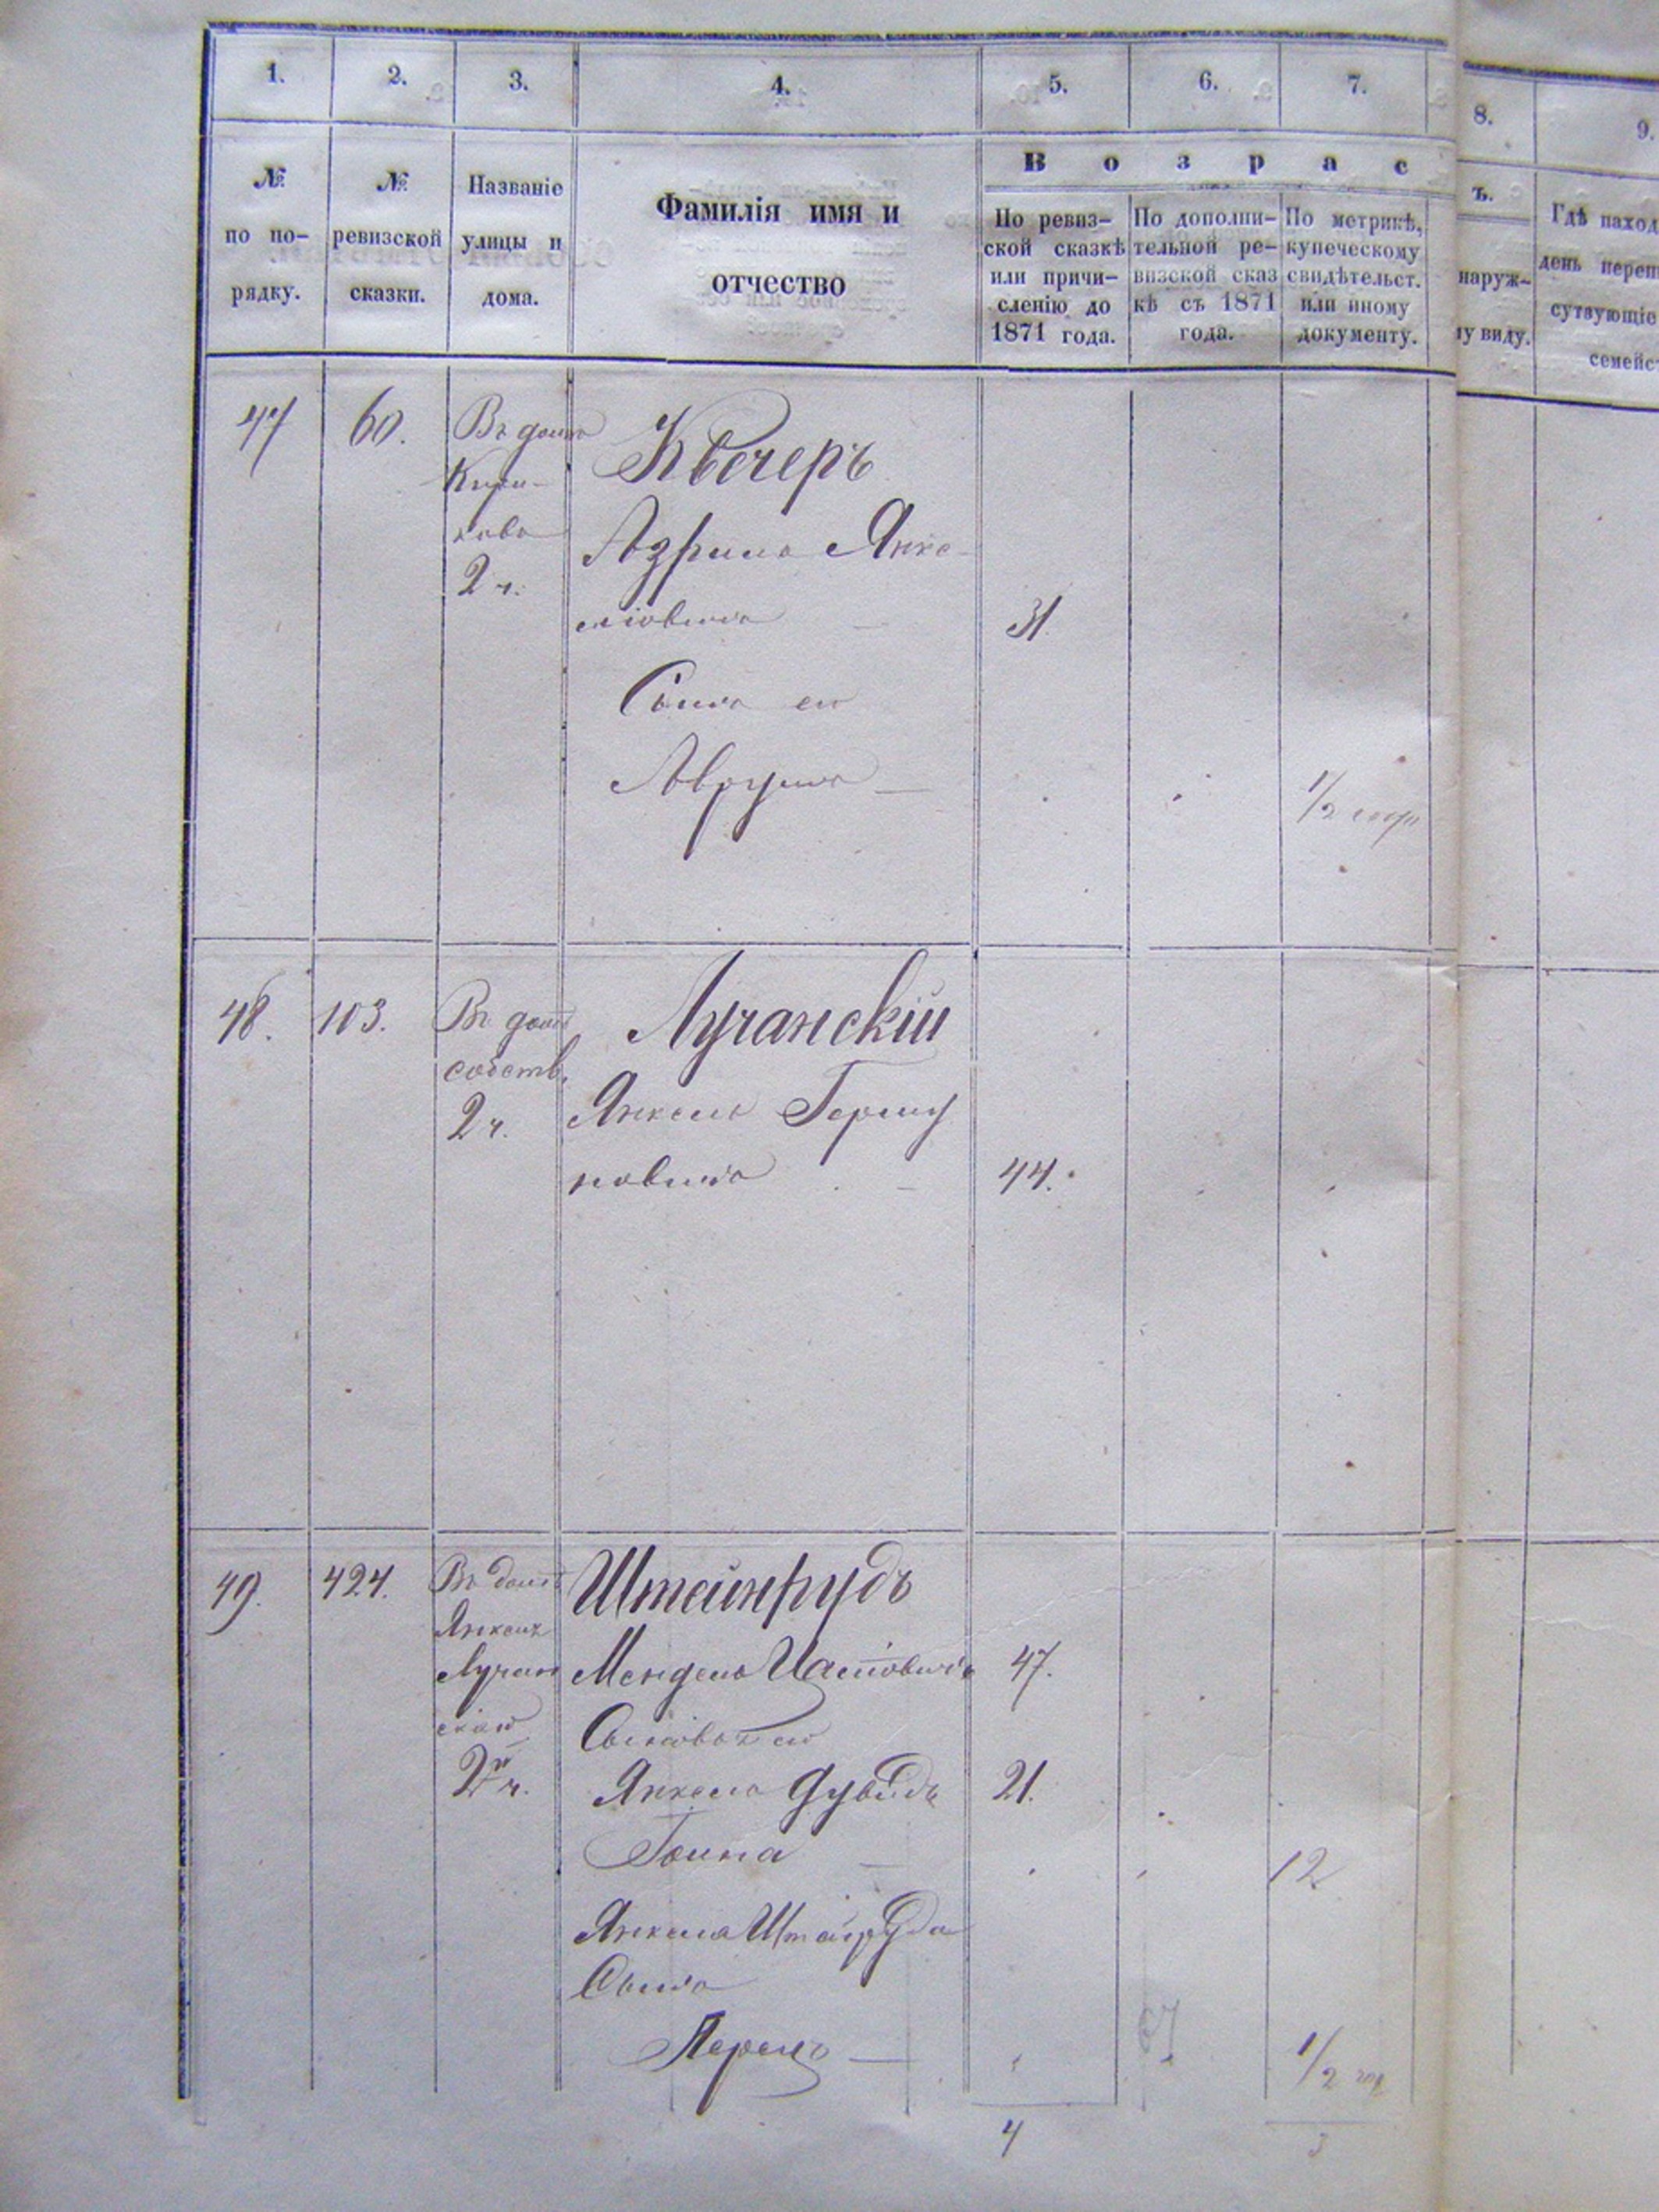 1. 2. 3. 4. 5. 6. 7. 8. 9.
№ по по-
рядку.
№ ревизской
сказки.
Названіе
улицы и
дома.
Фамилія имя и
отчество
В о з р а с
По ревиз-
ской сказкѣ
или причи-
сленію до
1871 года.
По дополни-
тельной ре-
визской сказ
кѣ съ 1871
года.
По метрикѣ,
купеческому
свидѣтельст.
или иному
документу.
ъ.
наруж-
у виду.
Гдѣ наход
день переп
сутвующіе
семейст
47 60. Въ домѣ
2 ч.
Квечеръ
Азриль Янке-
ліовичъ 31.
Сынъ его
Аврумъ 1/2 года
48. 103. Въ домѣ
собств.
2 ч.
Лучанскій
Янкель Гершу
новичъ 44.
49. 424. Въ домѣ
Янкеля
Лучан
скаго
2й ч.
Штейнрудъ
Мендель Ианіовичъ 47.
Сыновья его
Янкель Дувидъ 21.
12
Янкеля Штейнруда
Сынъ
Перецъ 1/2 год
4 3